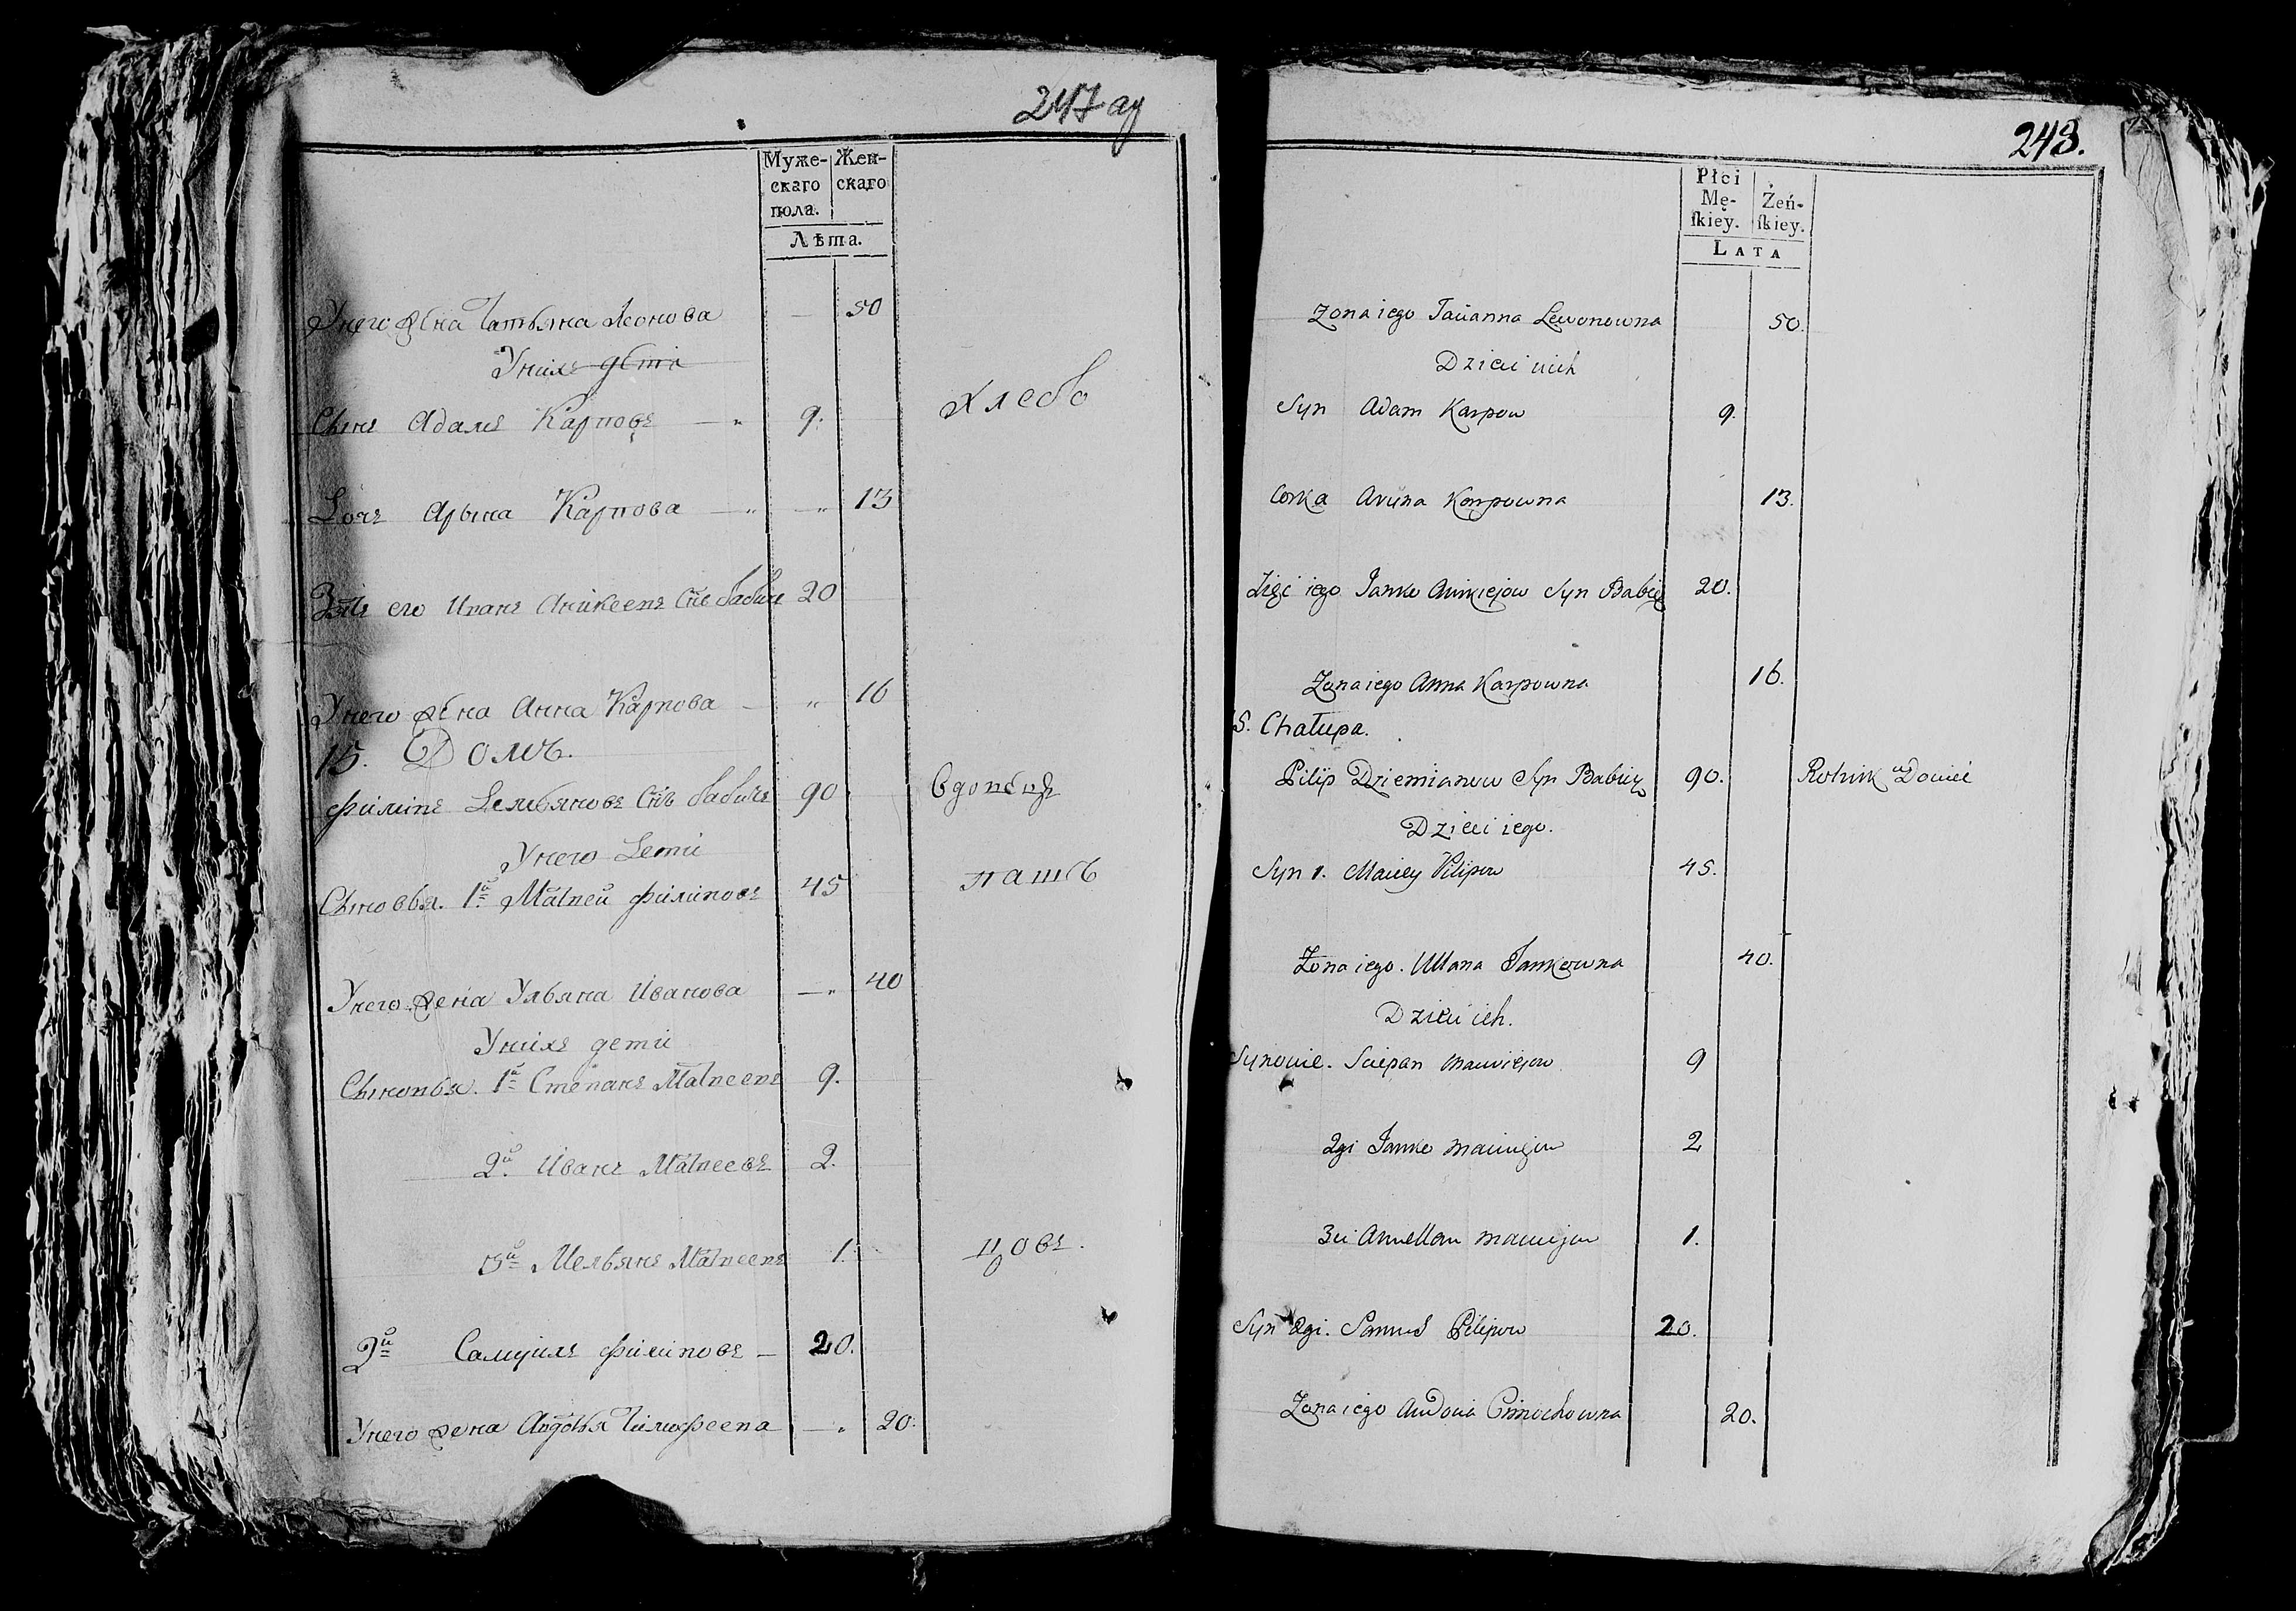 247 ау
Муже-
скаго
пола.
Жен-
скаго
Лѣта.
Унего жена Татьяна Леонова 50
Унихъ дети
Сынъ Адамъ Карповъ 9.
хлебо
Дочь Арына Карпова 13
Зять его Иванъ Аникеевъ Снъ бабичъ 20
Унего жена Анна Карпова 16
15. Домъ.
Филипъ Демьяновъ Снъ бабичъ 90
вдовецъ
Унего Дети
Сыновья. 1й Матвей Филиповъ 45
пашъ
Унего жена Ульяна Иванова 40
Унихъ дети
Сыновья. 1й Степанъ Матвеевъ 9.
2й Иванъ Матвеевъ 2.
3й Мельянъ Матвеевъ 1.
цовъ.
2й Самуилъ Филиповъ 20.
Унего жена Авдотья Тимофеева 20.
248.
Płci
Mę-
ſkiey.
Żeń-
ſkiey.
LATA
Zona iego Tacianna Lewonowna 50.
Dzieci ich
Syn Adam Karpow 9.
Corka Aryna Karpowna 13.
Zięć iego Janko Anikiejow Syn Babicz 20.
Zona iego Anna Karpowna 16.
15. Chałupa.
Pilip Dziemianow Syn Babicz 90. Rolnik Wdowiec
Dzieci iego.
Syn 1. Maciey Pilipow 45.
Zona iego. Ullana Jankowna 40.
Dzieci ich.
Synowie. Sciepan Maciejow 9
2gi Janko Maciejow 2
3ci Amellan Maciejow 1.
Syn 2gi. Samuś Pilipow 20.
Zona iego Audocia Cimochowna 20.